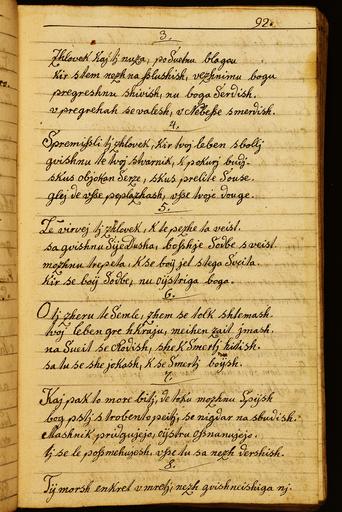 92.
3.
Zhlovek kaj tj nuza, posvetnu blagou
kir s tem nezh na sslushish, vezhnimu bogu
pregreshnu shivish, nu boga serdish.
v pregrehah se valesh, v Nebesse smerdish.
4.
Spremissli tj zhlovek, kir tvoj leben sbolij
gvishnu te tvoj stvarnik, k pokurj budj.
skus objokan serze, skus prelite souse.
glej de vsse poplazhash, vsse tvoje douge.
5.
Te virvej tj zhlovek, k te pezhe ta veist.
sa gvishnu sijedusha, boshje sodbe sveist.
mozhnu trepeta, k se bou jel s tega sveita
kir se boij sodbe, nu ojstriga boga.
6.
O tj zheru te semle, zhem se tolk shlemash.
tvoj leben gre h kraju, meihen zait jmash.
na sveit se rodish, she k smertj hitish.
sa tu se she jokash, k se smertj bojsh.
7.
Kaj pak to more bitj, de toku mozhnu spijsh
bog pstj s trobento peitj, se nigdar na sbudish.
Mashnik pridgujejo, ojstru osnanujejo.
tj se le possmehujesh, vsse tu sa nezh dershish.
8.
Tij morsh enkret vmretj, nezh gvishneishiga nj.